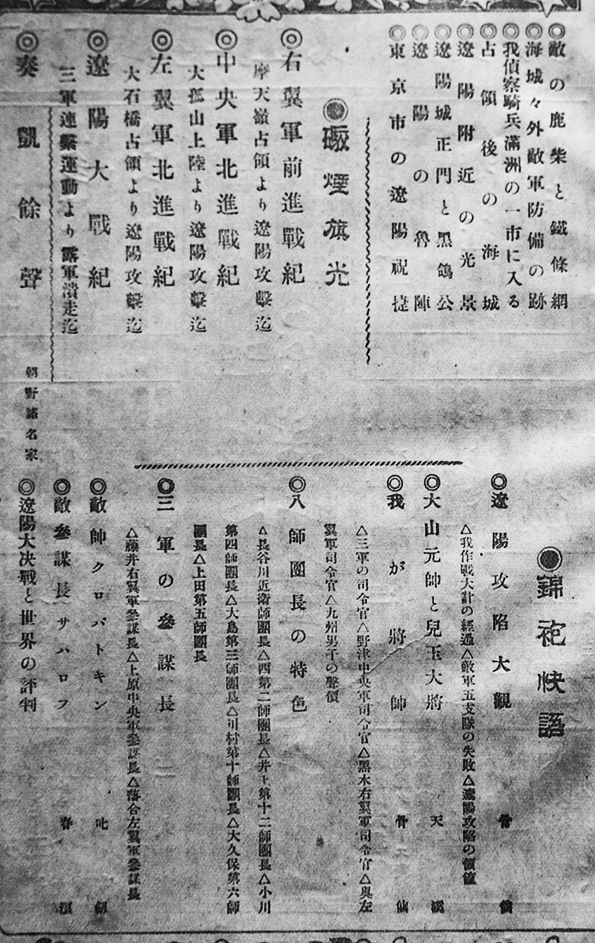 ◎敵の鹿柴と鐵條網
◎海城々外敵軍防備の跡
◎我偵察騎兵滿洲の一市に入る
◎占領後の海城
◎遼陽附近の光景
◎遼陽城正門と黒鴿公
◎遼陽の魯陣
◎東京市の遼陽祝捷
◉礮煙旗光
◎右翼軍前進戰紀
摩天嶺占領より遼陽攻擊迄
◎中央軍北進戰紀
大孤山上陸より遼陽攻擊迄
◎左翼軍北進戰紀
大石橋占領より遼陽攻擊迄
◎遼陽大戰紀
三軍連繫運動より露軍潰走迄
◎奏凱餘聲 朝野諸名家
◉錦袍快語
◎遼陽攻陷大觀 骨仙
△我作戰大計の經過△敵軍五支隊の失敗△遼陽攻陷の價値
◎大山元帥と兒玉大將 天溪
◎我が將帥 骨仙
△三軍の司令官△野津中央軍司令官△黑木右翼軍司令官△奥左
翼軍司令官△九州男子の聲價
◎八師團長の特色
△長谷川近衛師團長△西第二師團長△井上第十二師團長△小川
第四師團長△大島第三師團長△川村第十師團長△大久保第六師
團長△上田第五師團長
◎三軍の參謀長
△藤井右翼軍參謀長△上原中央軍參謀長△落合左翼軍參謀長
◎敵帥クロパトキン 叱劍
◎敵參謀長サハロフ 春
◎遼陽大決戰と世界の評判